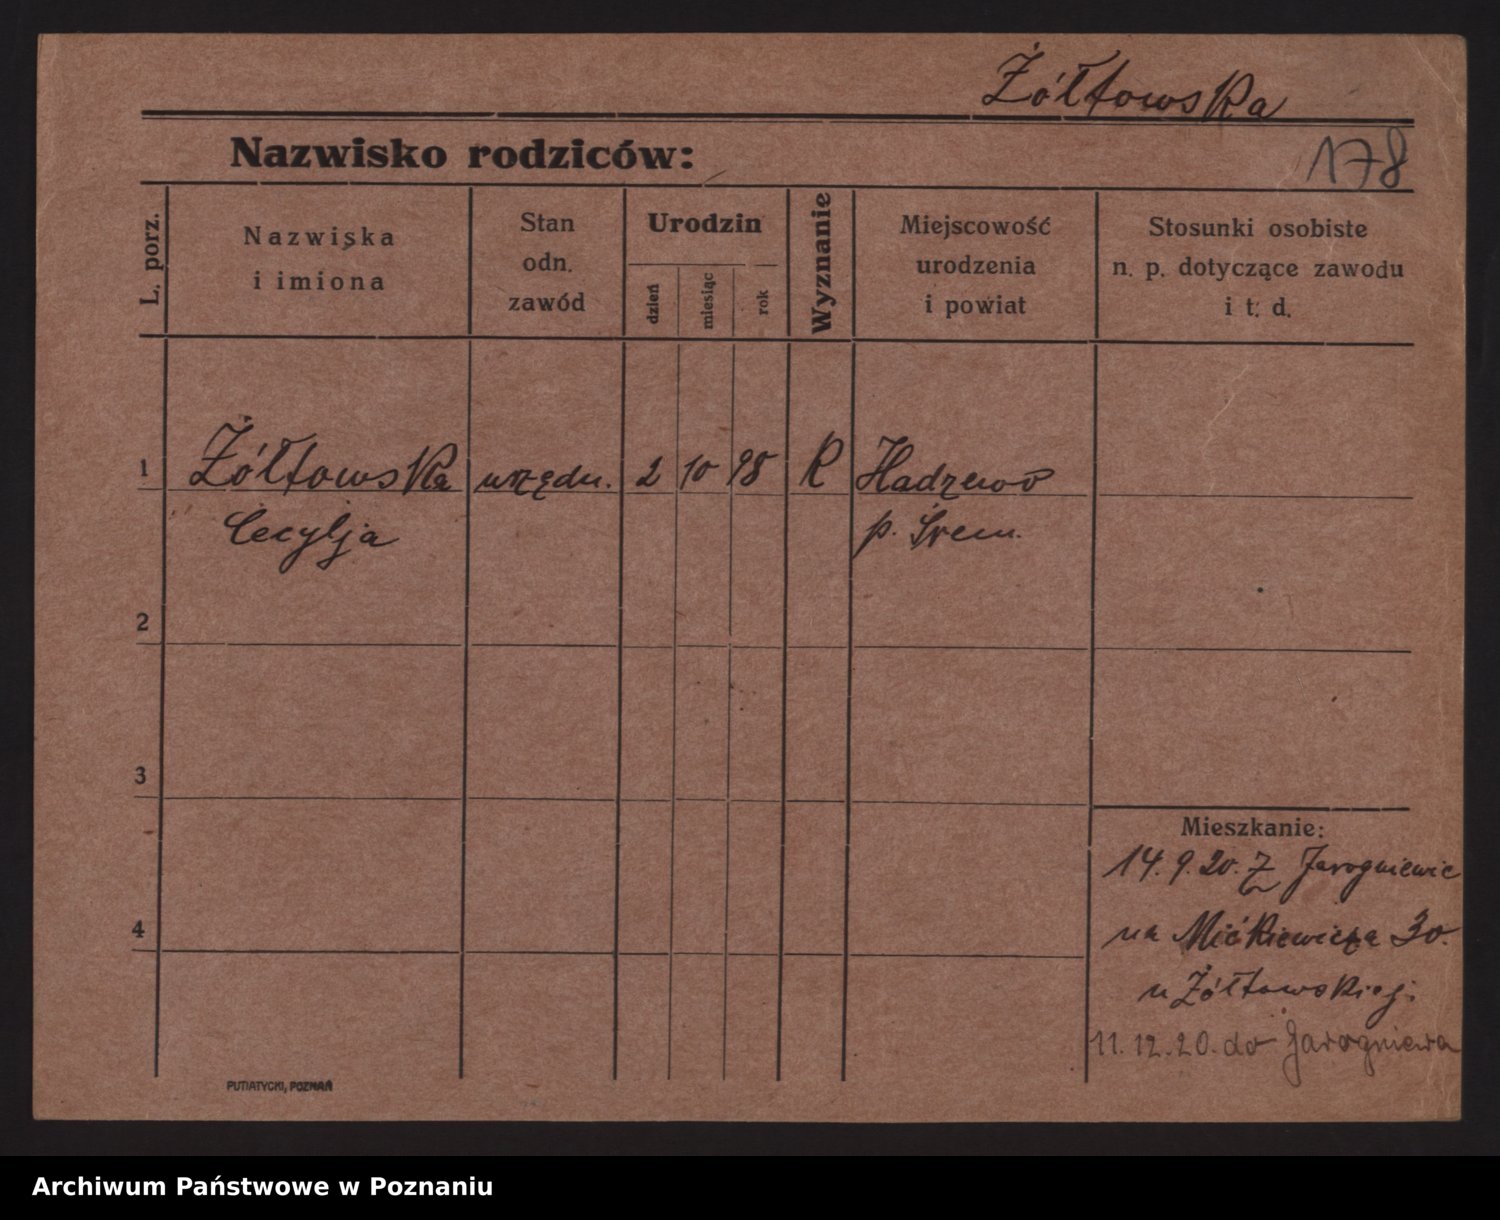 Żółtowska
Nazwisko rodziców:
178
L. porz.
Nazwiska
i imiona
Stan
odn.
zawód
Urodzin
dzień
miesiąc
rok
Wyznanie
Miejscowość
urodzenia
i powiat
Stosunki osobiste
n. p. dotyczące zawodu
i t. d.
1 Żółtowska urzędn. 2 10 98 R Hadzewo
Cecylja p. Śrem.
2
3
Mieszkanie:
14. 9. 20. Z Jarogniewic
4
na Mićkiewicza 30.
u Żółtowskiej.
11. 12. 20. do Jarogniewa
PUTIATYCKI, POZNAŃ
Archiwum Państwowe w Poznaniu